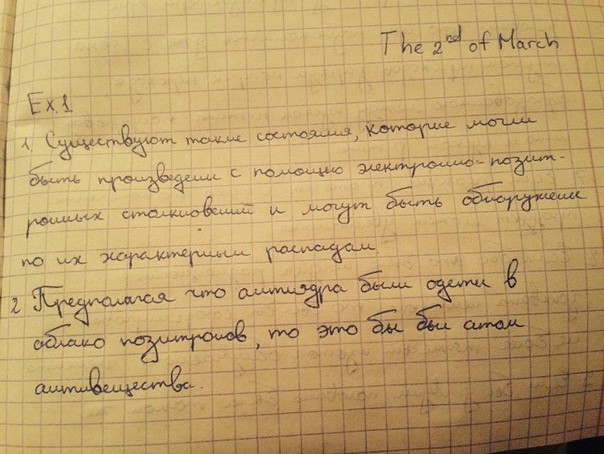 The 2nd of March
Ex.1
1. Существуют такие состояния, которые могли
быть произведены с помощью электронно-позит-
ронных столкновений и могут быть обнаружены
по их характерным распадам
2 Предполагая что антиядра были одеты в
облако позитронов, то это бы был атом
антивещества.